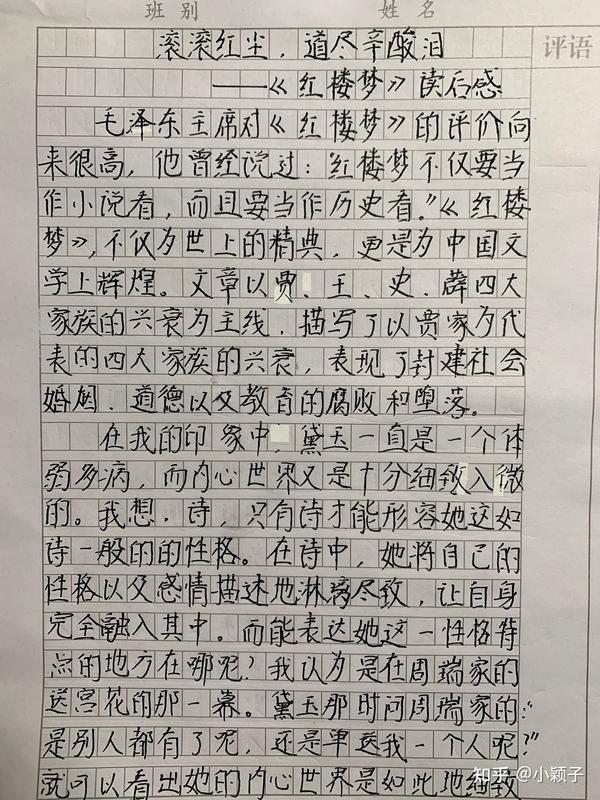 班 别 姓 名
评语
滚滚红尘，道尽辛酸泪
——《红楼梦》读后感
毛泽东主席对《红楼梦》的评价向
来很高，他曾经说过：红楼梦不仅要当
作小说看，而且要当作历史看。”《红楼
梦》，不仅为世上的精典，更是为中国文
学上辉煌。文章以贾、王、史、薛四大
家族的兴衰为主线，描写了以贾家为代
表的四大家族的兴衰，表现了封建社会
婚姻、道德以及教育的腐败和堕落。
在我的印象中，黛玉一直是一个体
弱多病，而内心世界又是十分细致入微
的。我想，诗，只有诗才能形容她这如
诗一般的的性格。在诗中，她将自己的
性格以及感情描述地淋漓尽致，让自身
完全融入其中。而能表达她这一性格特
点的地方在哪呢？我认为是在周瑞家的
送宫花的那一幕。黛玉那时问周瑞家的：“
是别人都有了呢，还是单送我一个人呢？”
就可以看出她的内心世界是如此地细致
知乎 @小颖子